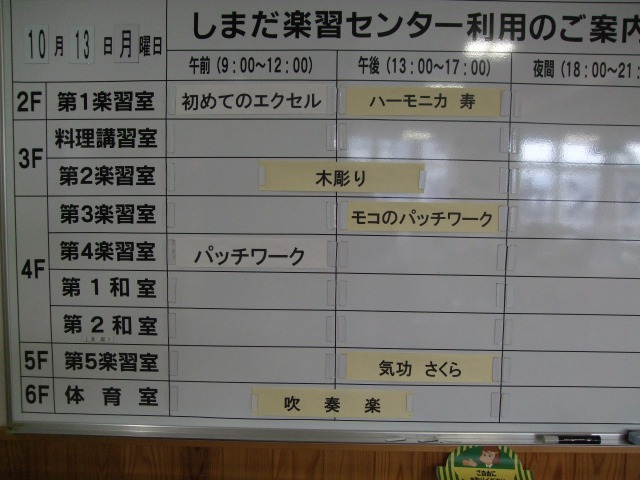 しまだ楽習センター利用のご案内
10月13日月曜日
午前（9：00～12：00） 午後（13：00～17：00） 夜間（18：00～21：
2F 第1楽習室 初めてのエクセル ハーモニカ 寿
3F 料理講習室
第2楽習室 木彫り
4F 第3楽習室 モコのパッチワーク
第4楽習室 パッチワーク
第1和室
第2和室
5F 第5楽習室 気功 さくら
6F 体育室 吹奏楽
ご自由に